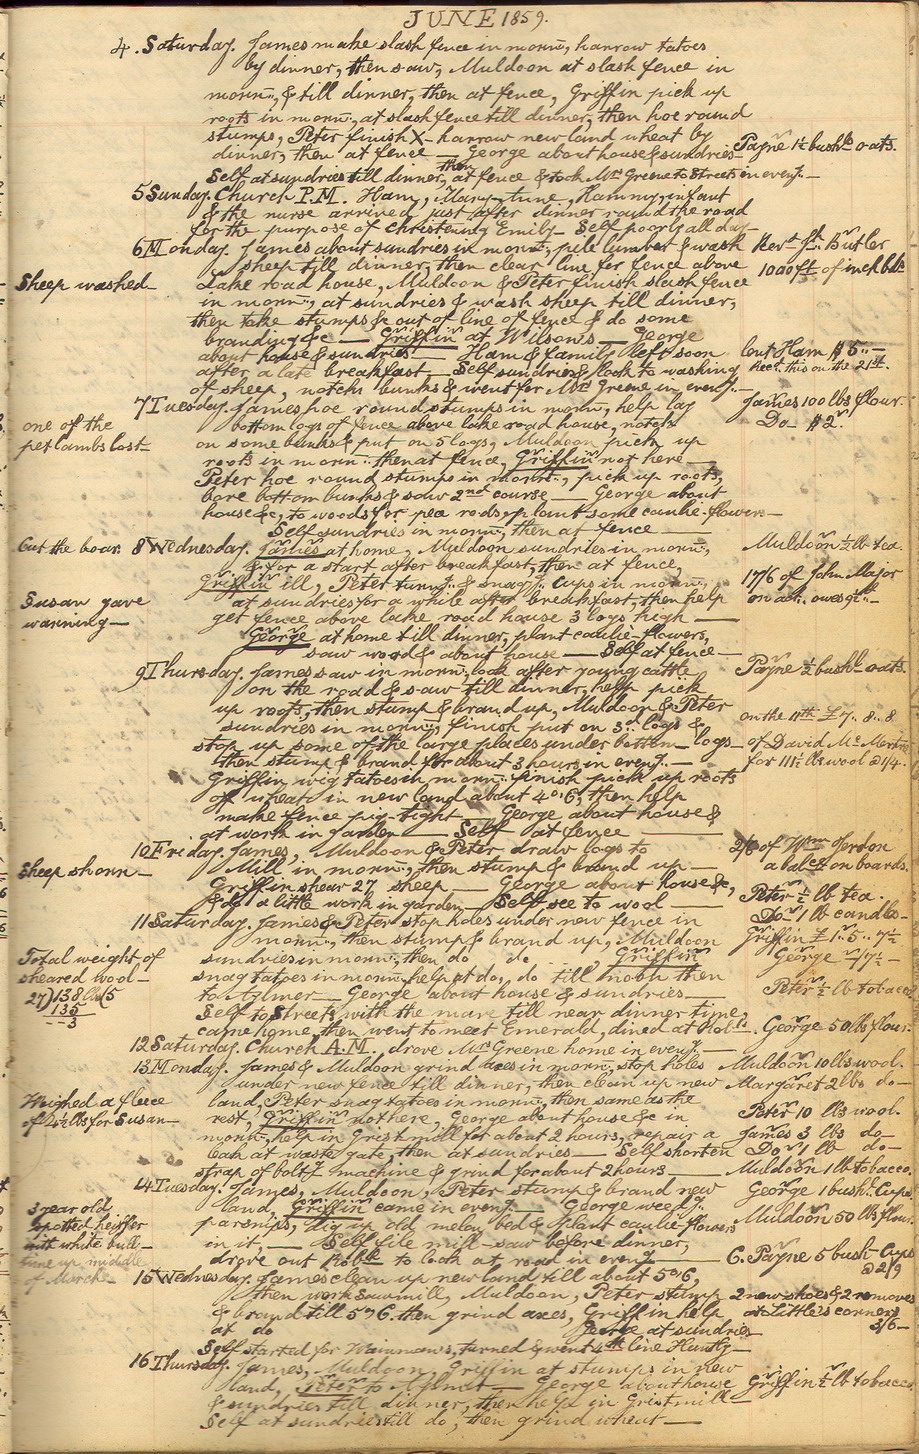 JUNE 1859.
4. Saturday. James make slash fence in mornn, harrow tatoes
by dinner, then saw, Muldoon at slash fence in
mornn., & till dinner, then at fence, Griffin pick up
roots in mornn., at slash fence till dinner, then hoe round
stumps, Peter finish X-harrow new land wheat by
dinner, then at fence — George about house & sundries—
Payne 1½ bushls oats.
Self at sundries till dinner, then at fence & took Mrs Greene to Streets in eveng. —
5 Sunday. Church P.M. Ham, Mary, June, Hammy infant
& the nurse arrived just after dinner round the road
for the purpose of christening Emily— Self poorly all day—
6 Monday. James about sundries in mornn., pile lumber & wash
Revd St. Butler
sheep till dinner, then clear line for fence above
1000 ft of inch bds
Sheep washed—
Lake road house, Muldoon & Peter finish slash fence
in mornn., at sundries & wash sheep till dinner,
then take stumps &c out of line of fence & do some
branding &c — Griffin at Wilson's — George
about house & sundries — Ham & family left soon
lent Ham $5.. —
after a late breakfast — Self sundries & look to washing
Recd. this on the 21st.
of sheep, notch bunks & went for Mrs Greene in eveng. —
7 Tuesday. James hoe round stumps in mornn., help lay
James 100 lbs flour.
one of the
bottom logs of fence above lake road house, notch
Do $2.
pet lambs lost—
on some bunks & put on 5 logs, Muldoon pick up
roots in mornn. then at fence, Griffin not here—
Peter hoe round stumps in mornn., pick up roots,
bore bottom bunks & saw 2nd course — George about
house &c, to woods for pea rods, plant some caulie-flowers—
Self sundries in mornn., then at fence—
Cut the boar.
8 Wednesday. James at home, Muldoon sundries in mornn.,
Muldoon ½ lb tea.
& for a start after breakfast, then at fence,
Griffin ill, Peter turng. & snagg. cups in mornn.,
17/6 of John Major
Susan gave
at sundries for a while after breakfast, then help
on act. owes 9½—
warning—
get fence above lake road house 3 logs high —
George at home till dinner, plant caulie-flowers,
saw wood & about house — Self at fence—
9 Thursday. James saw in mornn., look after young cattle
Payne ½ bushl oats.
on the road & saw till dinner, help pick
up roots, then stump & brand up, Muldoon & Peter
sundries in mornn., finish put on 3rd logs &
on the 11th £7.. 8.. 8
stop up some of the large places under bottom logs—
of David Mc
then stump & brand for about 3 hours in eveng. —
for 111½ lbs wool @ 1/4.
Griffin wig tatoes in mornn. finish pick up roots
of wheat in new land about 4 or 6, then help
make fence pig-tight — George about house &
at work in garden — Self at fence —
10 Friday. James, Muldoon & Peter draw logs to
2/6 of Wm
Mill in mornn., then stump & brand up —
a balce on boards.
Sheep shorn—
Griffin shear 27 sheep — George about house &c,
& do a little work in garden — Self see to wool —
Peter ½ lb tea.
11 Saturday. James & Peter stop holes under new fence in
Do 1 lb candles—
mornn., then stump & brand up, Muldoon
Griffin £1.. 5.. 7½
Total weight of
sundries in mornn., then do do, Griffin
George —/7½ —
sheared wool—
snag tatoes in mornn. help at do, do till noon then
27)138 lbs(5
to Aylmer — George about house & sundries —
Peter ½ lb tobacco
135
Self to Streets with the mare till near dinner time,
--3
came home, then went to meet Emerald, dined at Robt.
George 50 lbs flour.
12 Saturday. Church A.M. drove Mrs Greene home in eveng. —
13 Monday. James & Muldoon grind axes in mornn., stop holes
Muldoon 10 lbs wool.
under new fence till dinner, then clean up new
Margaret 2 lbs do—
Weighed a fleece
land, Peter snag tatoes in mornn., then same as the
of 4½ lbs for Susan—
rest, Griffin not here, George about house &c in
Peter 10 lbs wool.
mornn., help in Gristmill for about 2 hours, repair a
James 3 lbs do
leak at waste gate, then at sundries — Self shorten
Do 1 lb do—
strap of boltg. machine & grind for about 2 hours —
Muldoon 1 lb tobacco.
14 Tuesday. James, Muldoon, Peter stump & brand new
George 1 bushl Cups
3 year old
land, Griffin came in eveng. — George weedg.
spotted heiffer
parsnips, dig up old melon bed & plant caulie-flowers
Muldoon 50 lbs flour.
with white bull—
in it, — Self file mill-saw before dinner,
drove out Robt. to look at road in eveng. —
C. Payne 5 bush Cups
of March—
@ 2/9
15 Wednesday. James clean up new land till about 5 or 6,
then work sawmill, Muldoon, Peter stump
2 new shoes & 2 removes
& brand till 5 or 6. then grind axes, Griffin help
at Little's corners
at do George at sundries
3/6—
Self started for Wainman's, turned & went 4th line Huntly—
16 Thursday. James, Muldoon, Griffin at stumps in new
land, Peter to Aylmer — George about house
Griffin ½ lb tobacco
& sundries till dinner, then help in Gristmill—
Self at sundries till do, then grind wheat —